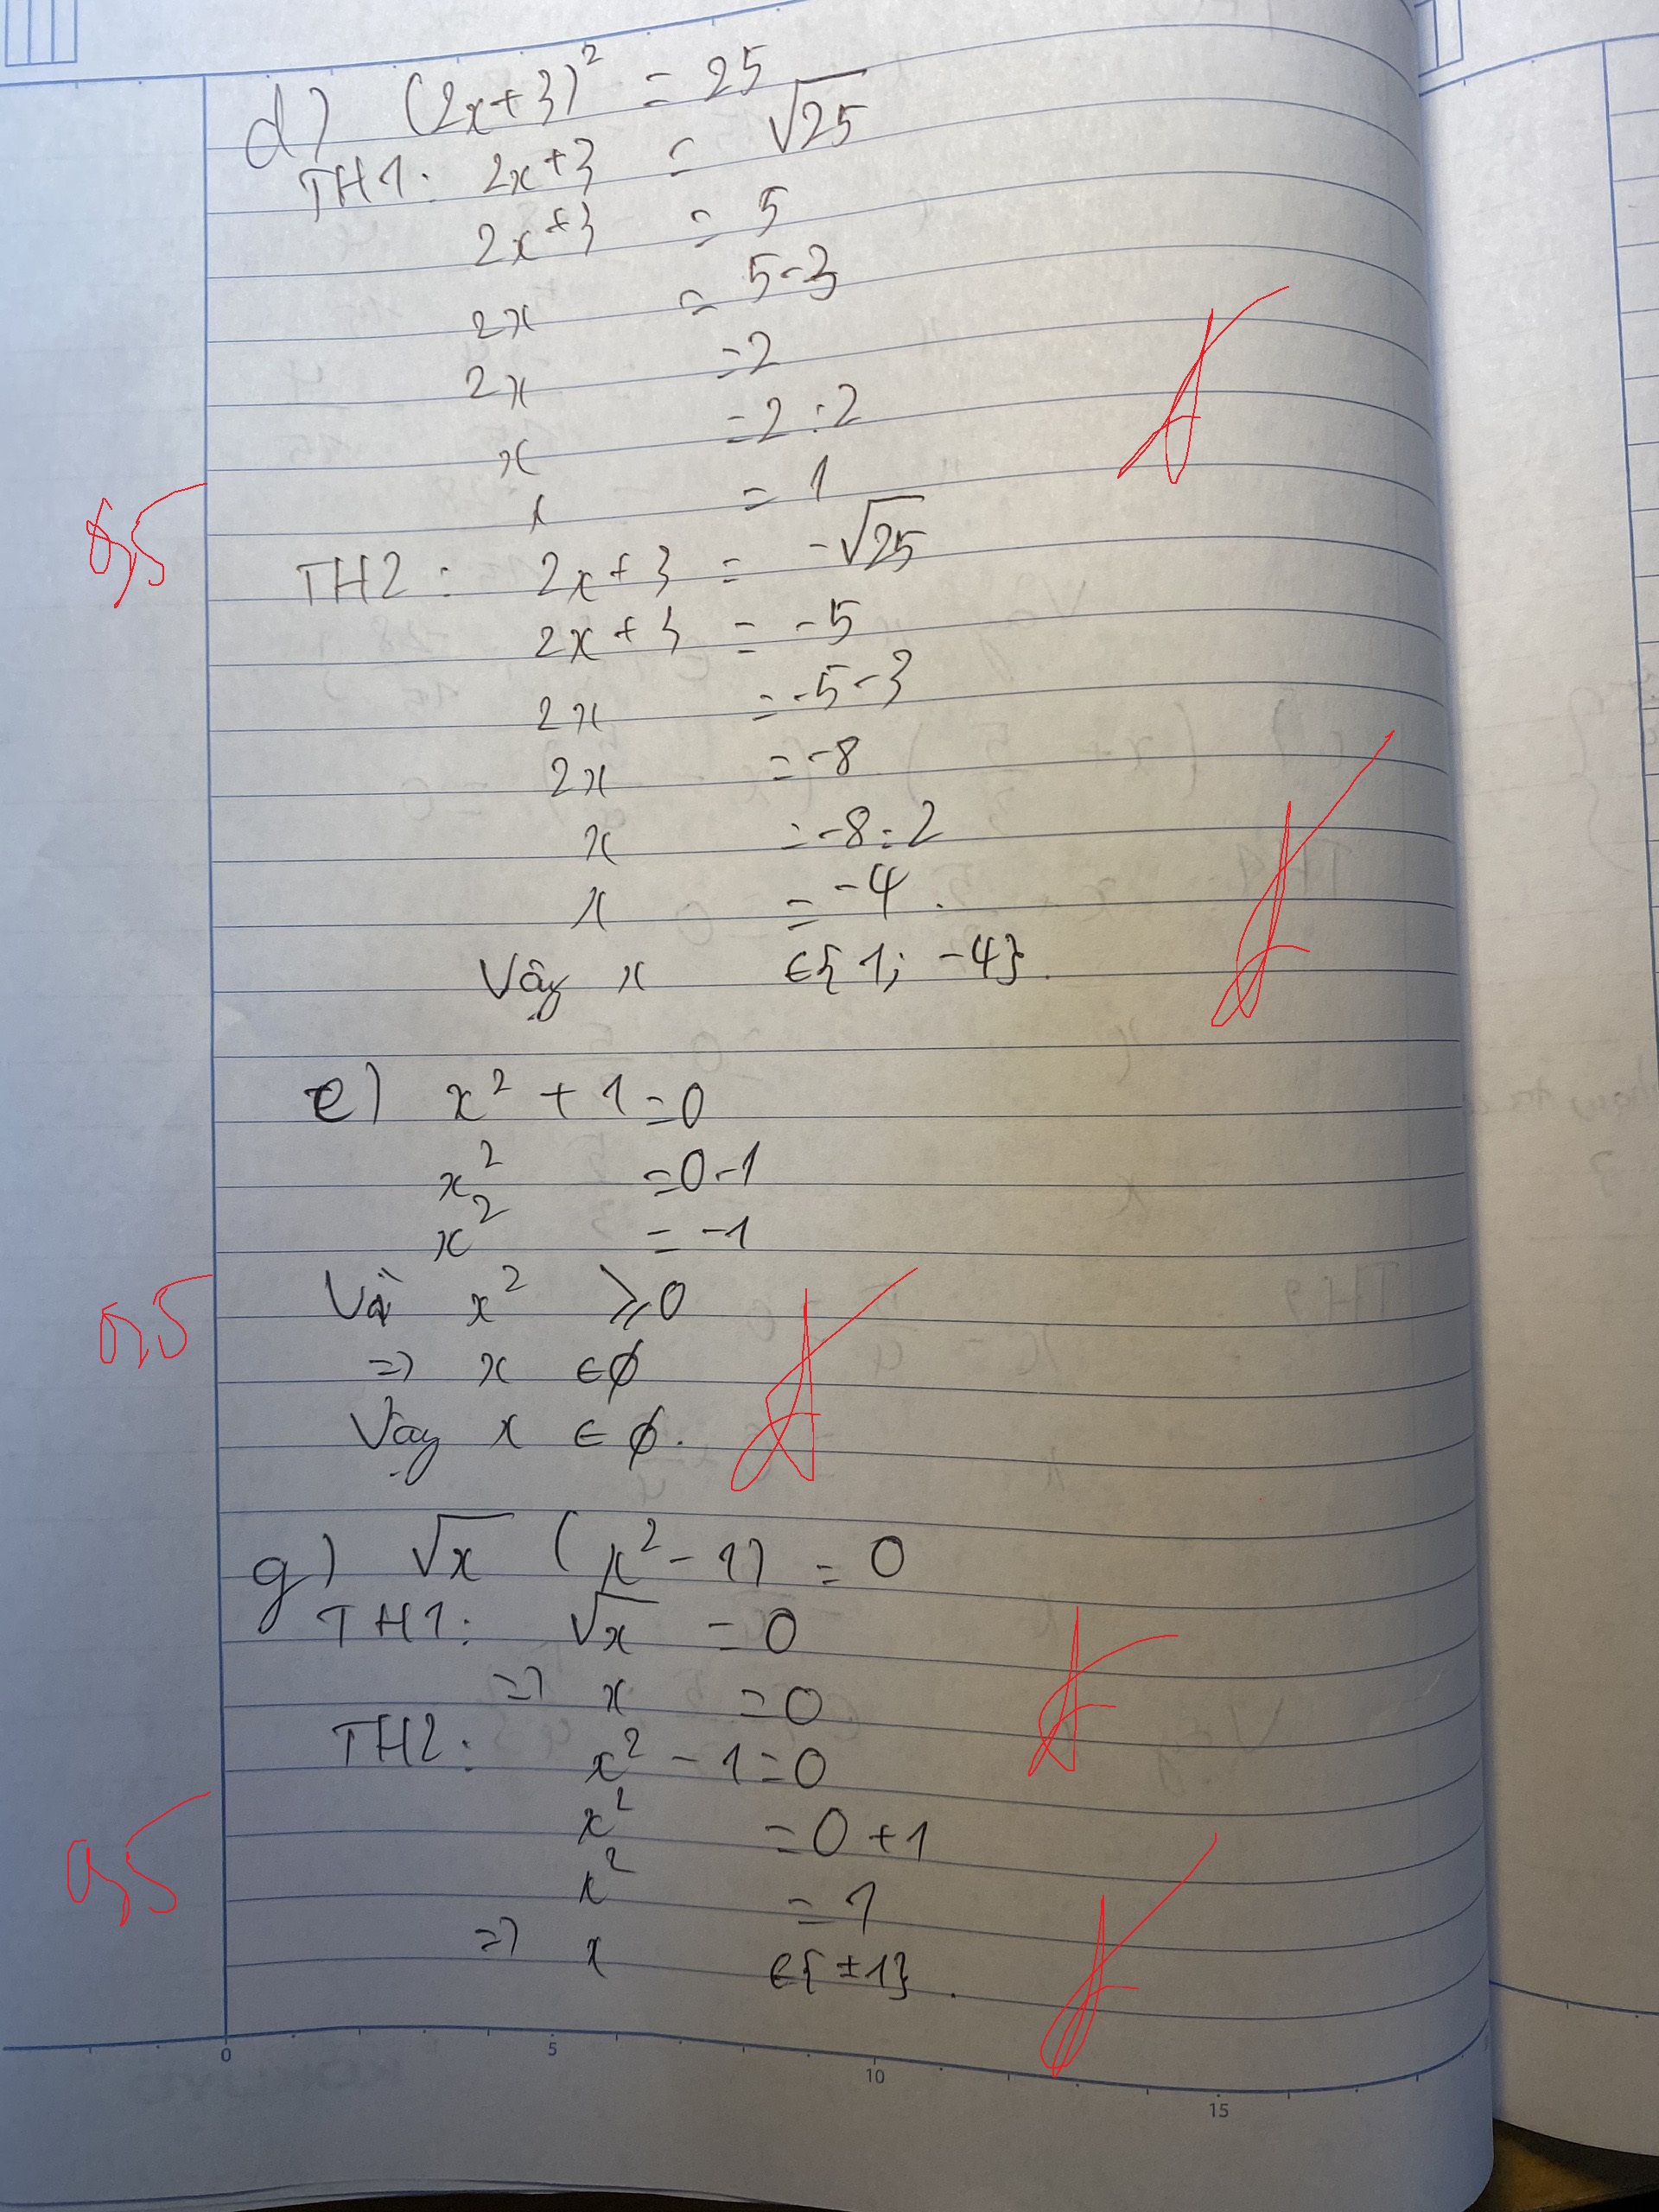 d) (2x+3)² = 25
TH1: 2x+3 = √25
2x+3 = 5
2x = 5-3
2x = 2
x = 2:2
x = 1
0,5
TH2: 2x+3 = -√25
2x+3 = -5
2x = -5-3
2x = -8
x = -8:2
x = -4.
Vậy x ∈{1; -4}.
e) x² + 1=0
x² =0-1
x² = -1
0,5
Vì x² ⩾0
=> x ∈∅
Vậy x ∈ ∅.
g) √x (x²-1) = 0
TH1: √x = 0
=> x =0
TH2: x² - 1=0
x² = 0+1
0,5
x² = 1
=> x ∈{±1}.
0 5 10 15